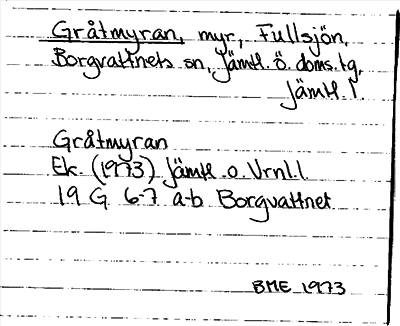 Gråtmyran, myr, Fullsjön,
Borgvattnets sn, Jämtl. ö. doms.tg,
Jämtl. l.
Gråtmyran
Ek. (1973) Jämtl. o. Vrnl.l.
19 G 6-7 a-b Borgvattnet
BME 1973